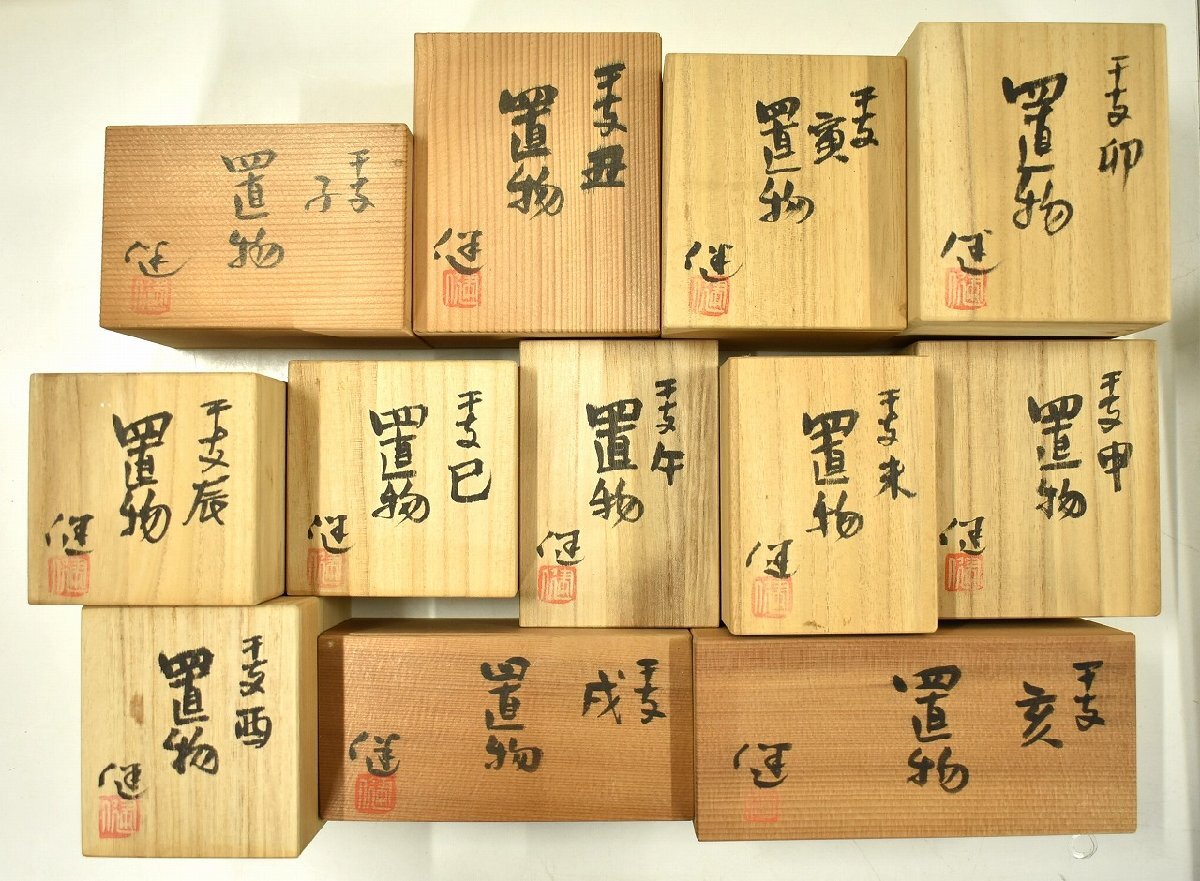 干支
子
置物
健
干支丑
置物
健
干支
寅
置物
健
干支卯
置物
健
干支辰
置物
健
干支巳
置物
健
干支午
置物
健
干支未
置物
健
干支申
置物
健
干支酉
置物
健
干支
戌
置物
健
干支
亥
置物
健